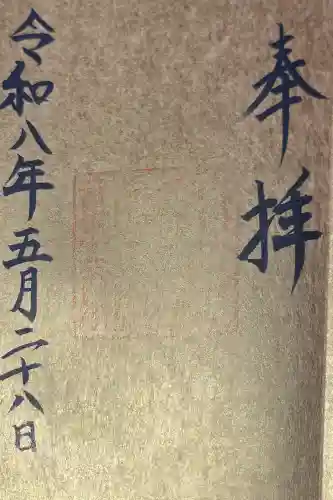 奉拝
令和八年五月二十八日